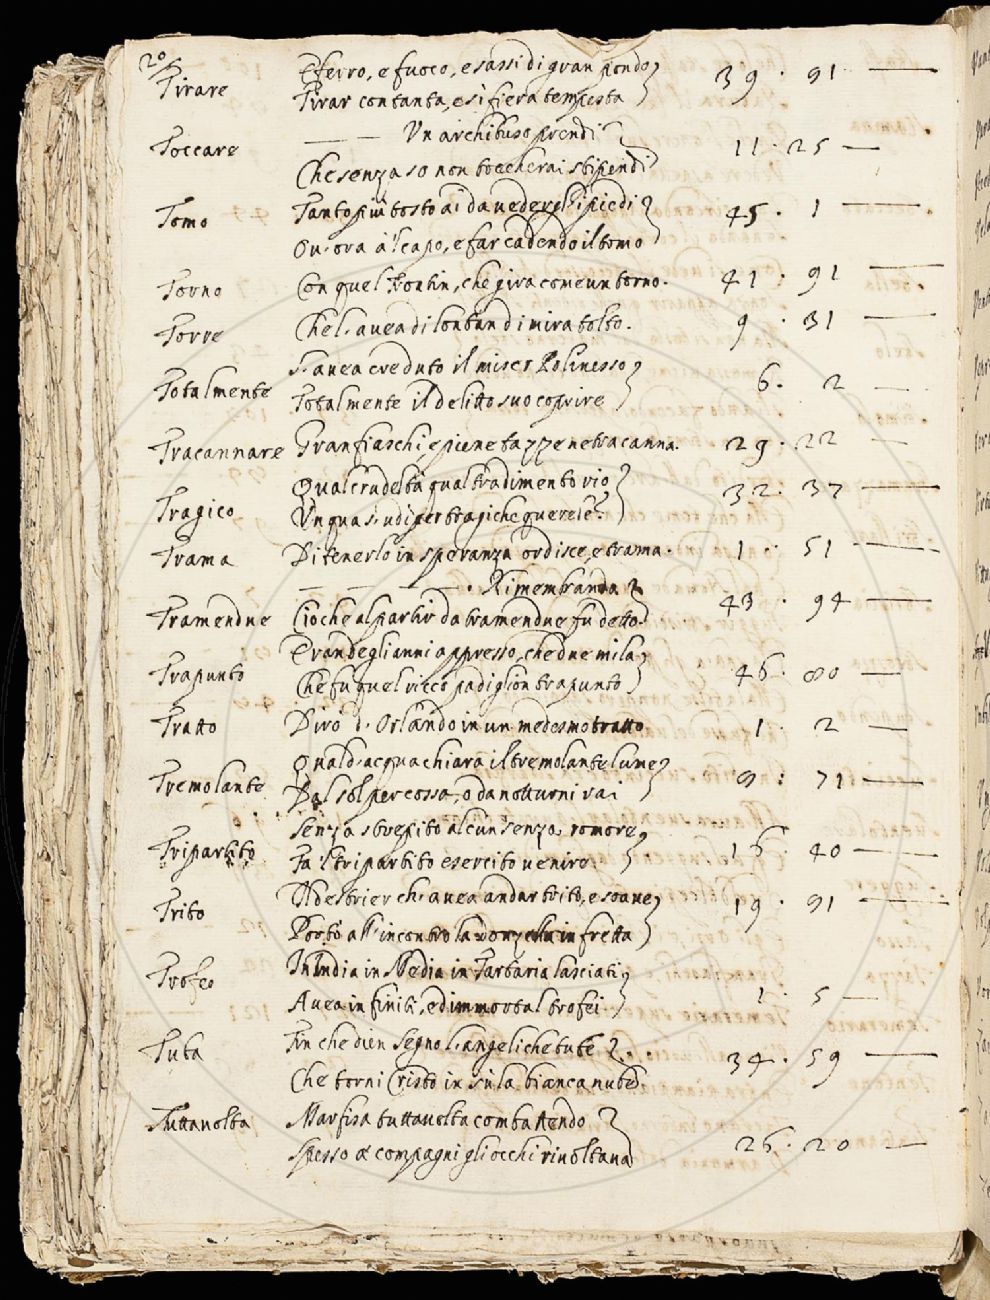 20
E ferro, e fuoco, e sassi di gran pondo
Tirare Tirar con tanta, e sì fiera tempesta 39 · 91
Un archibuso prendi
Toccare Che senza so non toccherai stipendi 11 · 25
Tomo Tanto più tosto ai da veder gl'i piedi 45 · 1
Ov' ora à 'l capo, e far cadendo il tomo
Torno Con quel Frontin, che gira come un torno. 41 · 91
Torre Che l' avea di lontan di mira tolto. 9 · 31
S' avea creduto il miser Polinesso
Totalmente Totalmente il delitto suo coprire 6 · 2
Tracannare Gran fiaschi e piene tazze ne tracanna. 29 · 22
Qual crudeltà qual tradimento rio 32 · 37
Tragico Unqua s' udì per tragiche querele?
Trama Di tenerlo in speranza ordisce, e trama. 1 · 51
Rimembranda
Tramendue Ciò che al partir da tramendue fu detto. 43 · 94
Eran degli anni appresso, che due mila
Trapunto Che fu quel ricco padiglion trapunto 46 · 80
Tratto Dirò d' Orlando in un medesmo tratto 1 · 2
Qual d' acqua chiara il tremolante lume
Tremolante Dal sol percossa, o da notturni rai 8 : 71
Senza strepito alcun senza romore
Tripartito Fa 'l tripartito esercito venire. 16 · 40
Il destrier ch' avea andar trito, e soave
Trito Portò all' incontro la donzella in fretta 19 · 91
Trofeo In India in Media in Tartaria lasciati
Avea infiniti, ed immortal trofei 1 · 5
Tuba Fin che dien segno l' angeliche tube
Che torni Cristo in sù la bianca nube. 34 · 59
Tuttavolta Marfisa tuttavolta combattendo
Spesso a' compagni gli occhi rivoltava 26 · 20